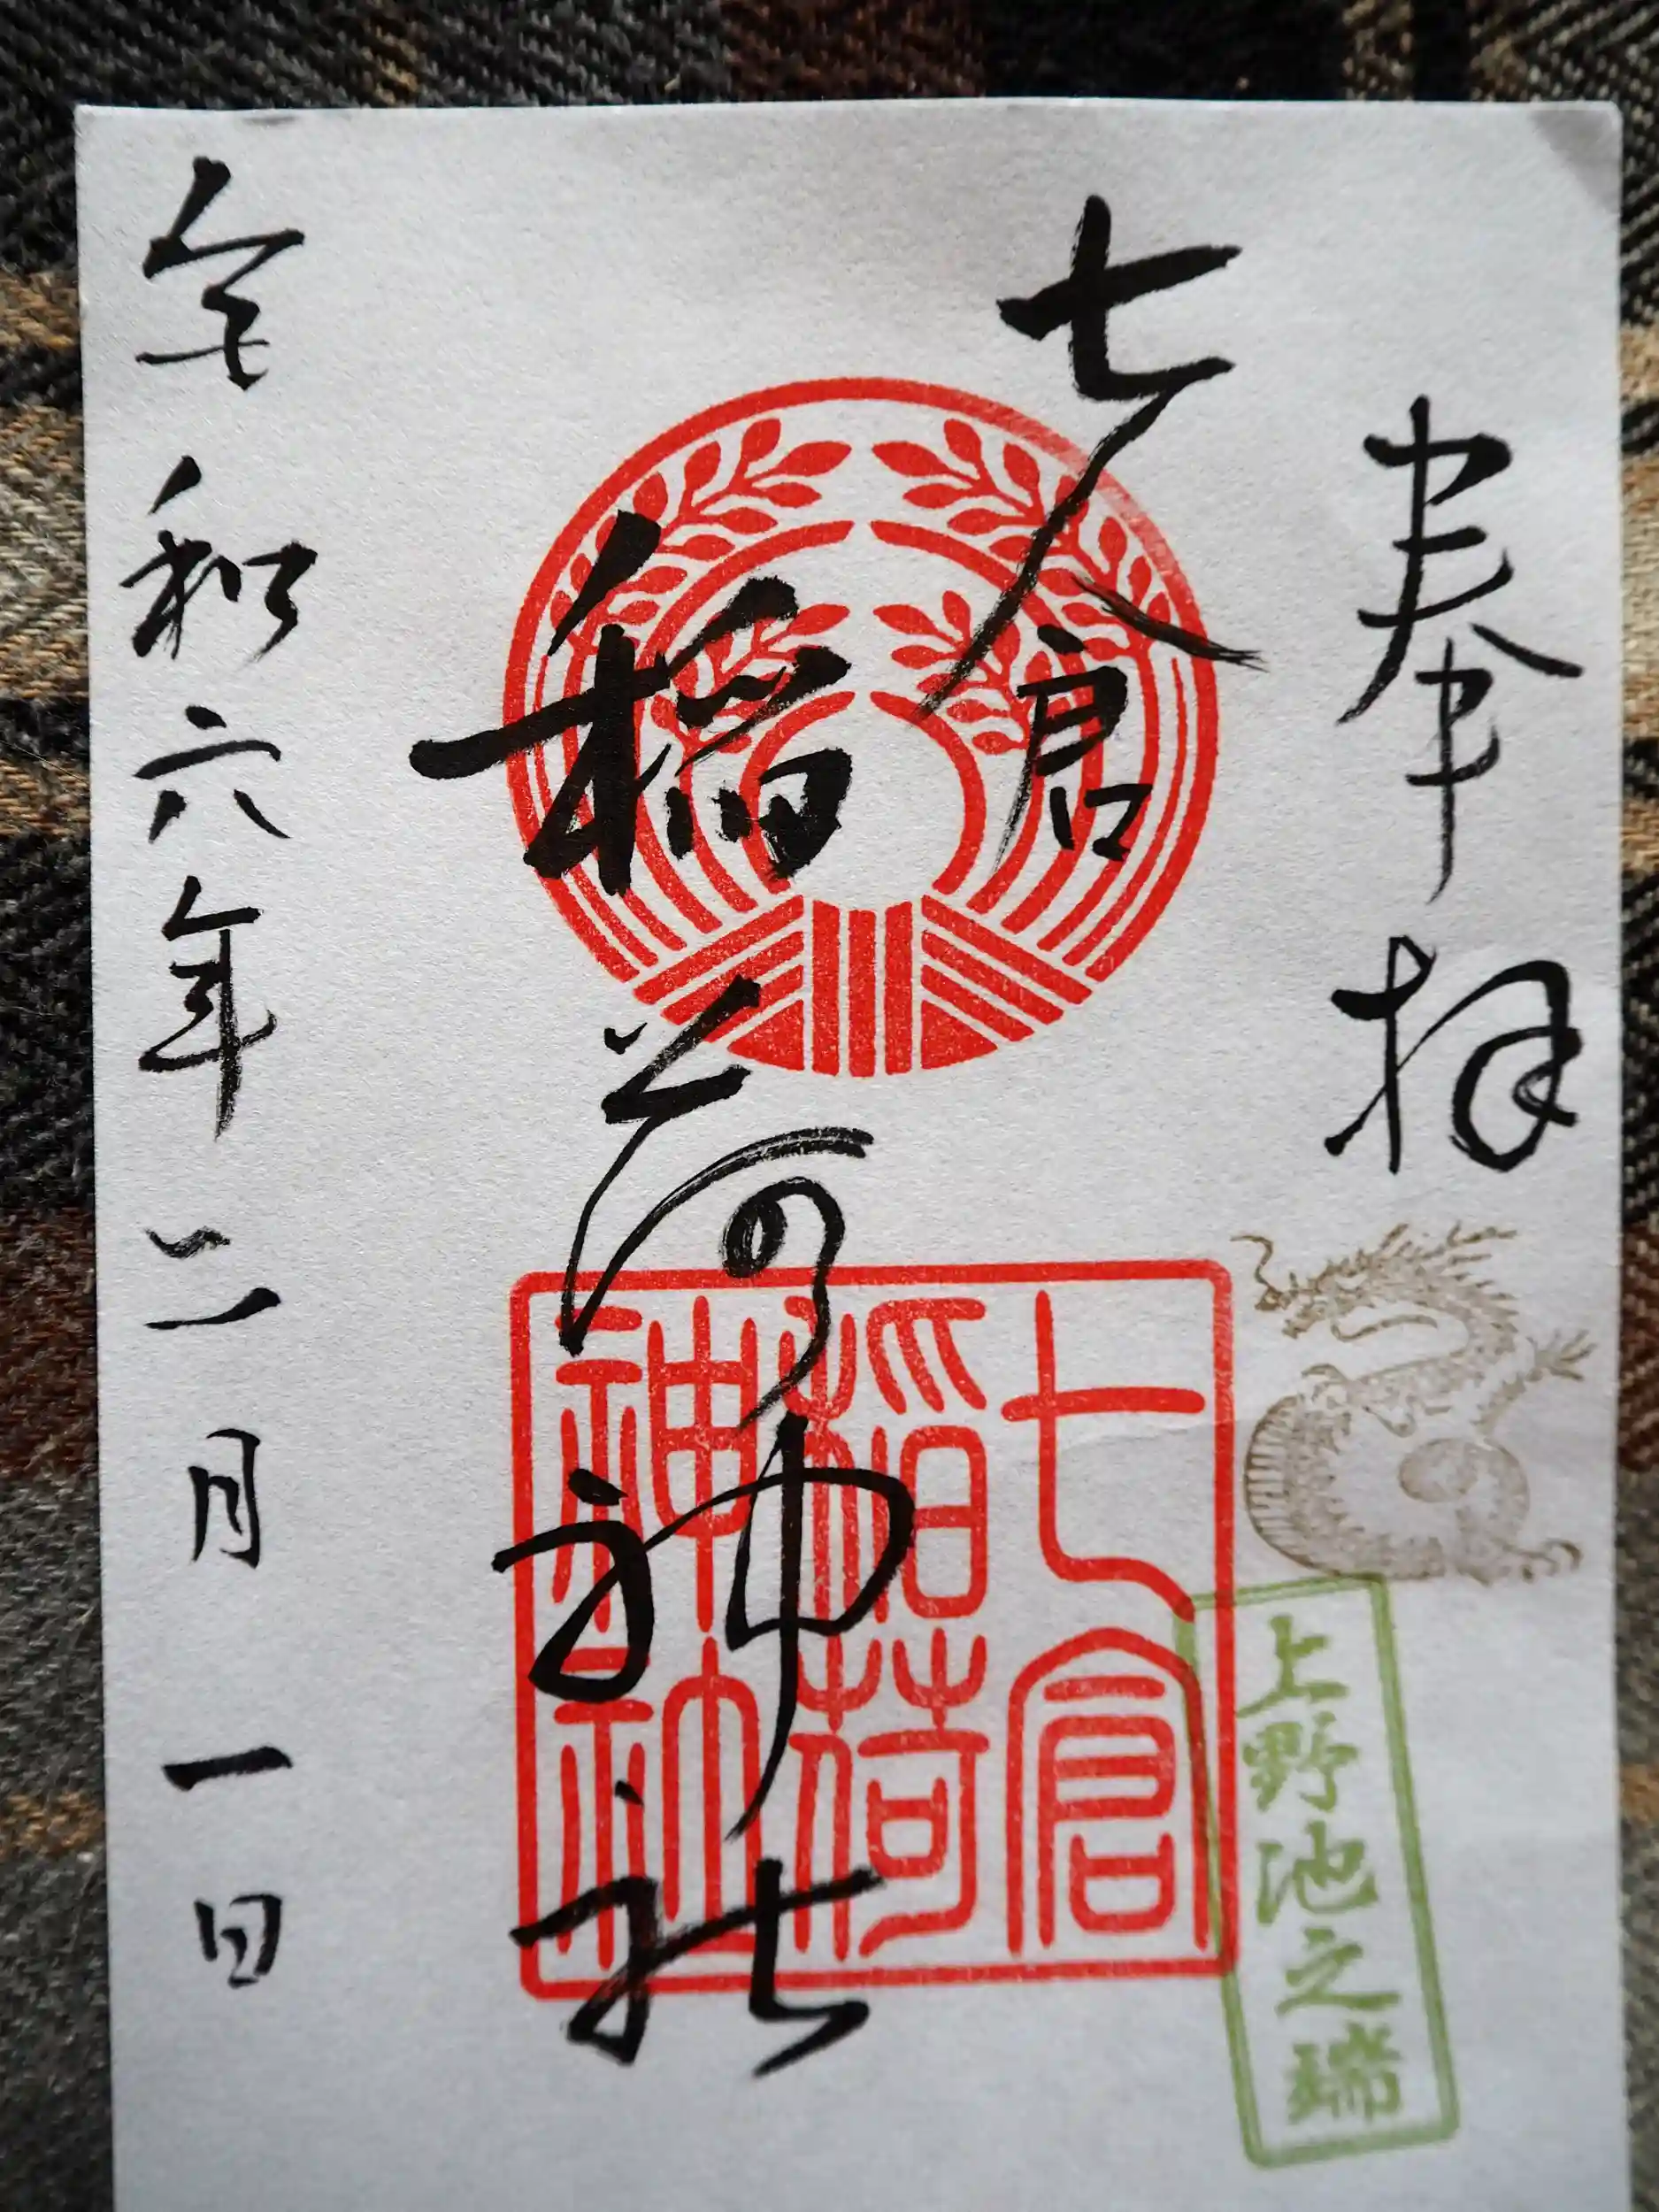 奉拝
七倉
稲荷神社
令和六年二月一日
七倉
稲荷
神社
上野池之端